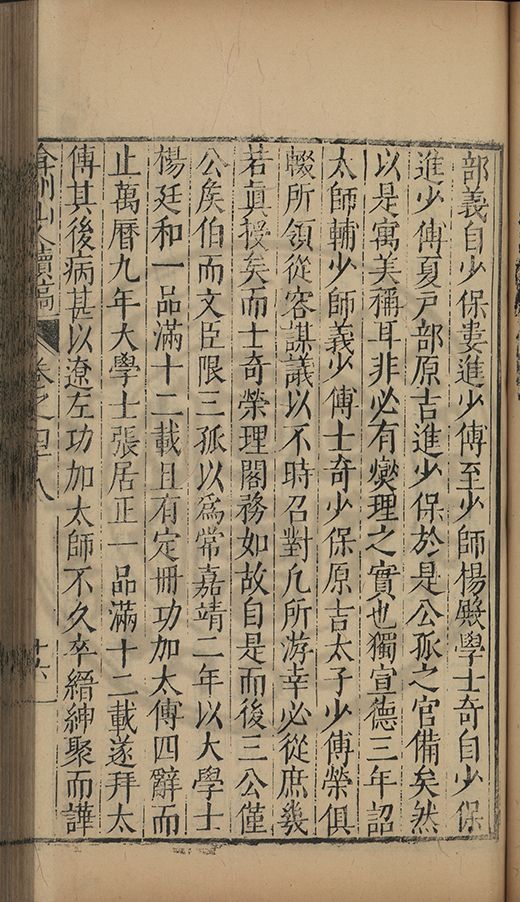 部義自少保婁進少傅至少師楊殿學士奇自少保
進少傅夏戸部原吉進少保於是公孤之官備矣然
以是寓美稱耳非必有燮理之實也獨宣德三年詔
太師輔少師義少傅士奇少保原吉太子少傅榮俱
輟所領從容謀議以不時召對凡所游幸必從庶幾
若眞授矣而士奇榮理閣務如故自是而後三公僅
公矦伯而文臣限三孤以爲常嘉靖二年以大學士
楊廷和一品滿十二載且有定册功加太傅四辭而
止萬曆九年大學士張居正一品滿十二載遂拜太
傅其後病甚以遼左功加太師不久卒縉紳聚而譁
弇州山人續稿 卷之四十八 十六